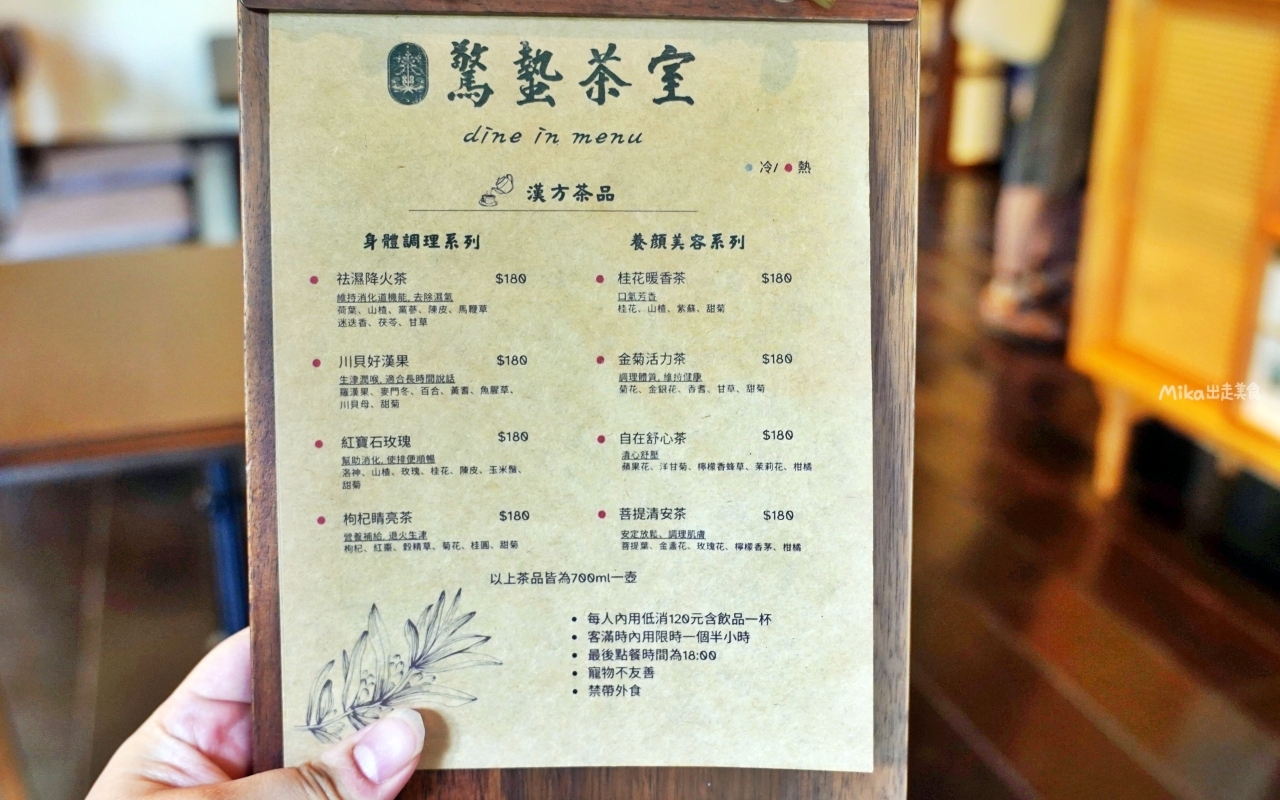 驚蟄茶室
dine in menu
冷/ 熱
漢方茶品
身體調理系列
祛濕降火茶 $180
維持消化道機能, 去除濕氣
荷葉、山楂、黨蔘、陳皮、馬鞭草
迷迭香、茯苓、甘草
川貝好漢果 $180
生津潤喉, 適合長時間說話
羅漢果、麥門冬、百合、黃耆、魚腥草、
川貝母、甜菊
紅寶石玫瑰 $180
幫助消化, 使排便順暢
洛神、山楂、玫瑰、桂花、陳皮、玉米鬚、
甜菊
枸杞睛亮茶 $180
營養補給, 退火生津
枸杞、紅棗、穀精草、菊花、桂圓、甜菊
養顏美容系列
桂花暖香茶 $180
口氣芳香
桂花、山楂、紫蘇、甜菊
金菊活力茶 $180
調理體質, 維持健康
菊花、金銀花、香耆、甘草、甜菊
自在舒心茶 $180
清心舒壓
蘋果花、洋甘菊、檸檬香蜂草、茉莉花、柑橘
菩提清安茶 $180
安定放鬆、調理肌膚
菩提葉、金盞花、玫瑰花、檸檬香茅、柑橘
以上茶品皆為700ml一壺
• 每人內用低消120元含飲品一杯
• 客滿時內用限時一個半小時
• 最後點餐時間為18:00
• 寵物不友善
• 禁帶外食
Mika出走美食